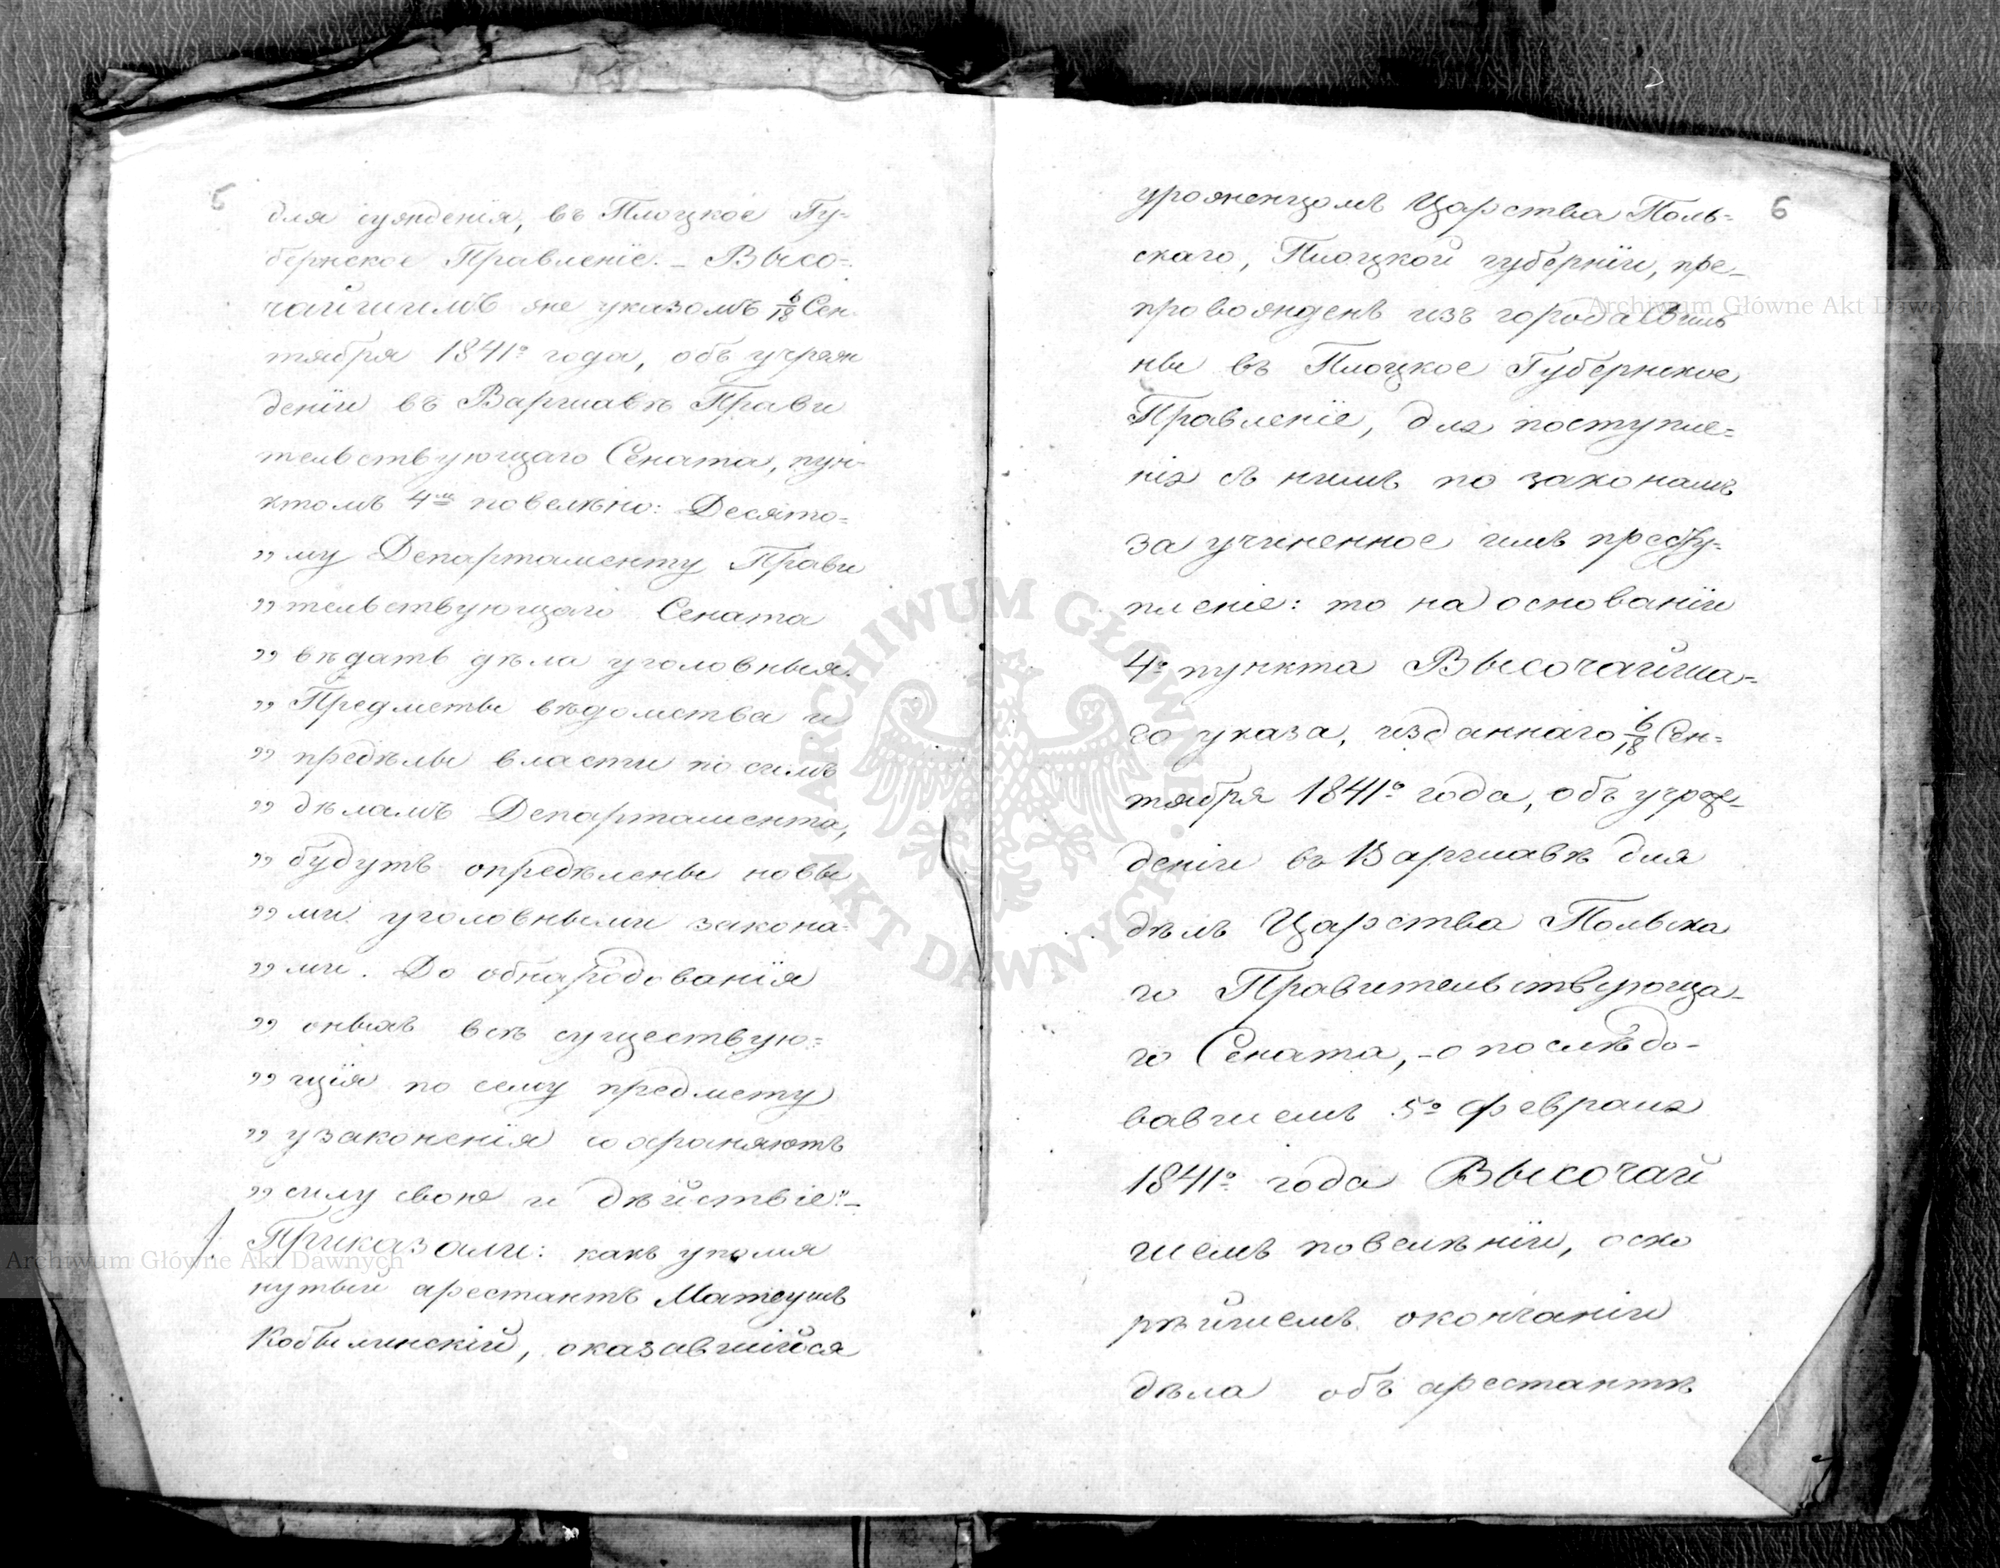 5
для сужденія, въ Плоцкое Гу-
бернское Правленіе. – Высо-
чайшимъ же указомъ 6/18 Сен-
тября 1841го года, объ учреж
деніи въ Варшавѣ Прави
тельствующаго Сената, пун-
ктомъ 4мъ повелѣно: Десято-
„ му Департаменту Прави
„ тельствующаго Сената
„ вѣдать дѣла уголовныя.
„ Предметы вѣдомства и
„ предѣлы власти по симъ
„ дѣламъ Департамента,
„ будутъ опредѣлены новы
„ ми уголовными закона-
„ ми. До обнародованія
„ оныхъ всѣ существую-
„ щія по сему предмету
„ узаконенія сохраняютъ
„ силу свою и дѣйствіе". –
Приказали: какъ упомя
нутый арестантъ Матеушъ
Кобылинскій, оказавшійся
6
уроженцомъ Царства Поль-
скаго, Плоцкой губерніи, пре-
провожденъ изъ города Виль
ны въ Плоцкое Губернское
Правленіе, для поступле-
нія съ нимъ по законамъ
за учиненное имъ престу-
пленіе: то на основаніи
4го пункта Высочайша-
го указа, изданнаго 6/18 Сен-
тября 1841го года, объ учреж-
деніи въ Варшавѣ для
дѣлъ Царства Польска
го Правительствующа-
го Сената, – о послѣдо-
вавшемъ 5го февраля
1841го года Высочай
шемъ повелѣніи, о ско
рѣйшемъ окончаніи
дѣла объ арестантѣ
Archiwum Główne Akt Dawnych
Archiwum Główne Akt Dawnych
ARCHIWUM GŁÓWNE AKT DAWNYCH